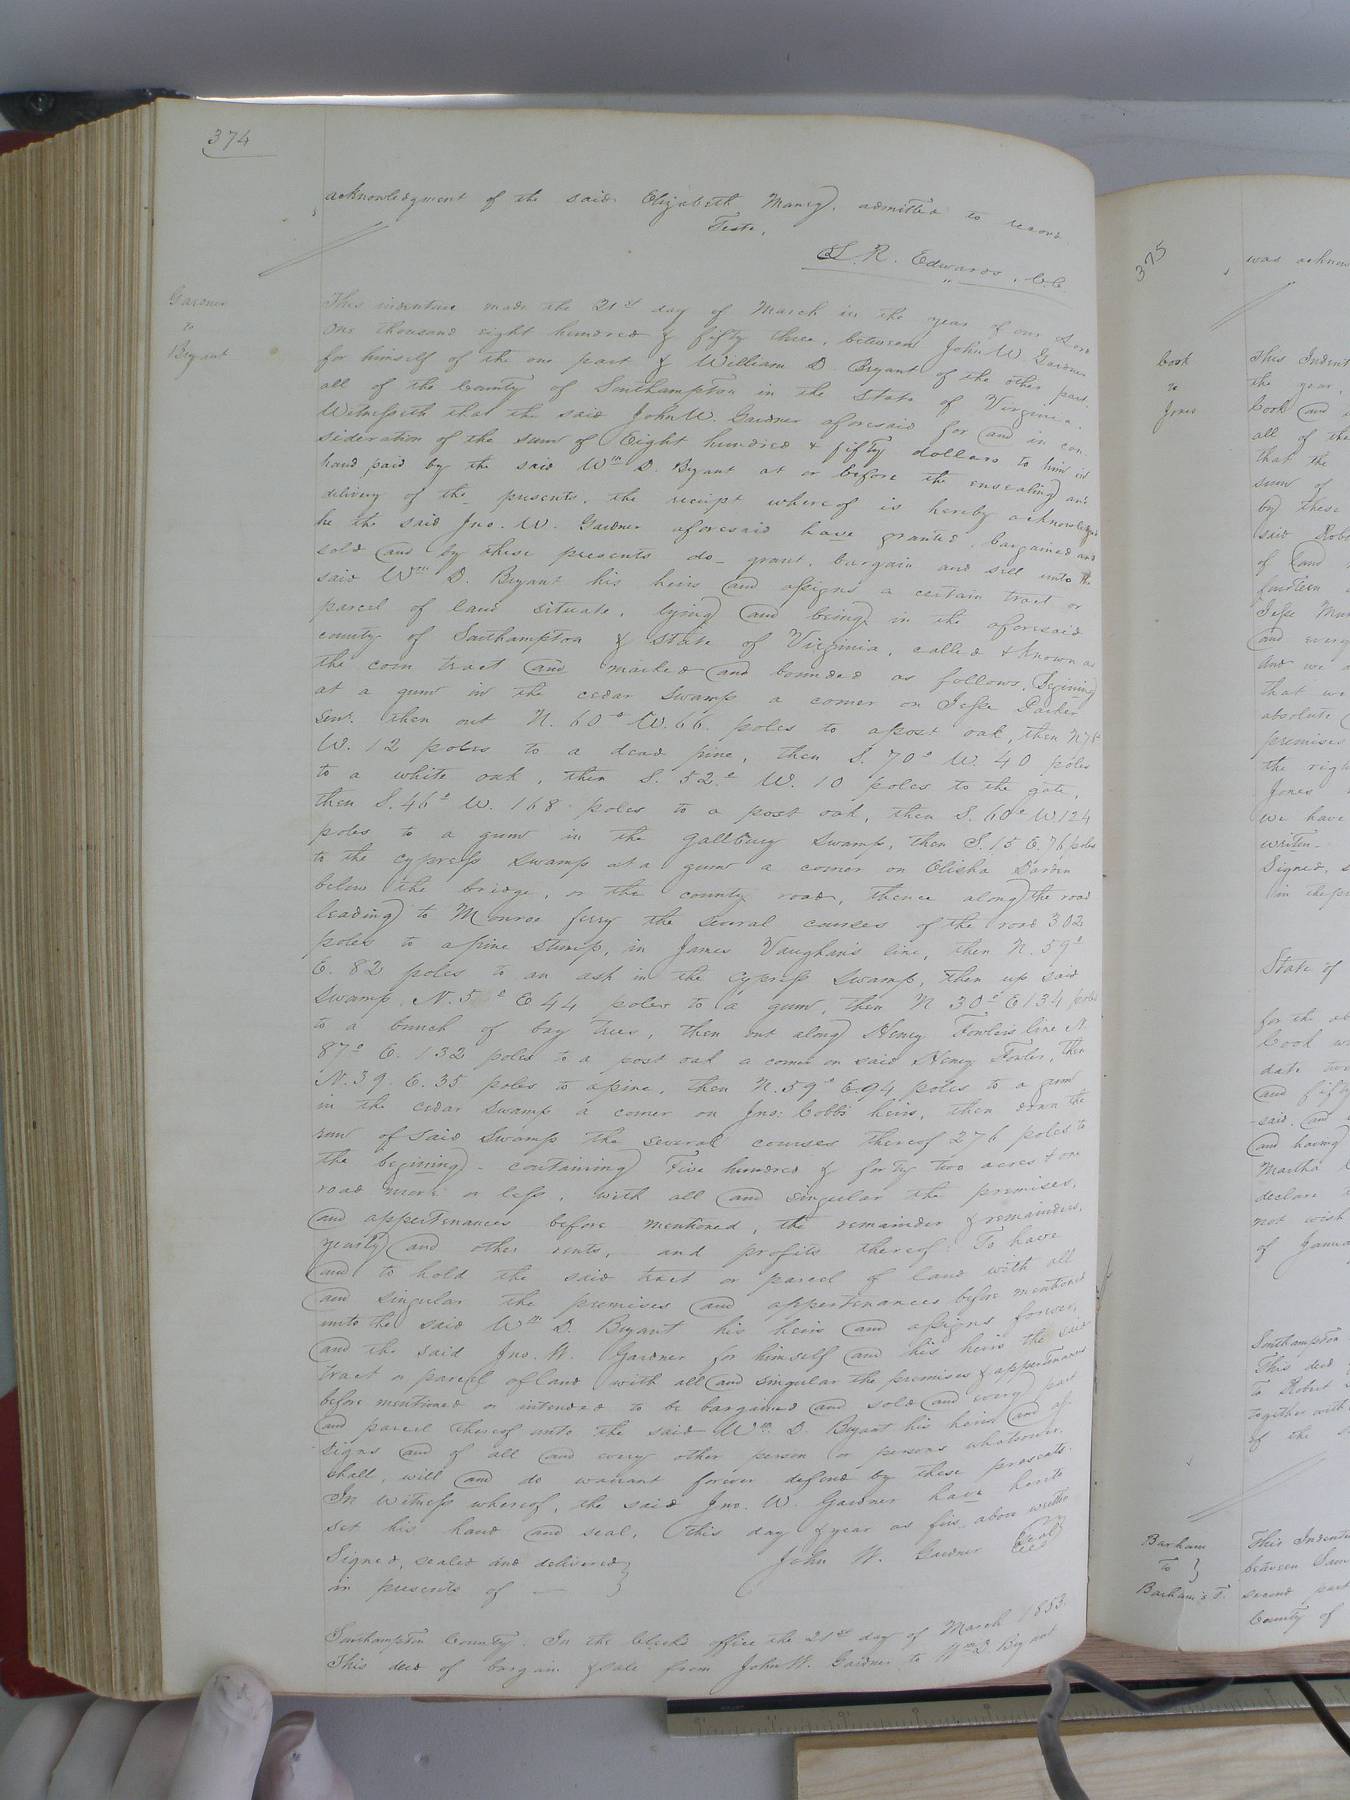 374
acknowledgment of the said Elizabeth Maney, admitted to record.
Teste,
L. R. Edwards, C.C.
Gardner
to
Bryant
This indenture made the 21st day of March in the year of our Lord
one thousand eight hundred & fifty three, between John W. Gardner
for himself of the one part & William D. Bryant of the other part,
all of the County of Southampton in the State of Virginia.
Witnesseth that the said John W. Gardner aforesaid for and in con
sideration of the sum of Eight hundred & fifty dollars to him in
hand paid by the said Wm D. Bryant at or before the ensealing and
delivery of the presents, the receipt whereof is hereby acknowledged
he the said Jno. W. Gardner aforesaid have granted, bargained and
sold and by these presents do grant, bargain and sell unto the
said Wm D. Bryant his heirs and assigns a certain tract or
parcel of land situate, lying and being in the aforesaid
county of Southampton & State of Virginia, called & known as
the corn tract and marked and bounded as follows, Begining
at a gum in the cedar swamp a corner on Jesse Parker
Senr. then out N. 60° W. 66 poles to a post oak, then N78
W. 12 poles to a dead pine, then S. 70° W. 40 poles
to a white oak, then S. 52° W. 10 poles to the gate,
then S. 46° W. 168 poles to a post oak, then S. 60° W 124
poles to a gum in the gallbury swamp, then S. 15 E. 76 poles
to the cypress swamp at a gum a corner on Elisha Darden
below the bridge, or the county road, thence along the road
leading to Monroe ferry the several courses of the road 302
poles to a pine stump, in James Vaughan's line, then N. 59°
E. 82 poles to an ash in the cypress swamp, then up said
swamp N. 5° E 44 poles to a gum, then N 30° E 134 poles
to a bunch of bay trees, then out along Henry Fowler's line N.
87° E. 132 poles to a post oak a corner on said Henry Fowler, then
N. 39. E. 35 poles to a pine, then N. 59° E. 94 poles to a gum
in the cedar swamp a corner on Jno: Cobb's heirs, then down the
run of said swamp the several courses thereof 276 poles to
the begining - containing Five hundred & forty two acres & one
road more or less, with all and singular the premises,
and appertenances before mentioned, the remainder & remainders,
yearly and other rents, and profits thereof. To have
and to hold the said tract or parcel of land with all
and singular the premises and appertenances before mentioned
unto the said Wm D. Bryant his heirs and assigns forever,
and the said Jno. W. Gardner for himself and his heirs the said
tract or parcel of land with all and singular the premises & appertenances
before mentioned or intended to be bargained and sold and every part
and parcel thereof unto the said Wm D. Bryant his heirs and as-
signs and of all and every other person or persons whatsoever
shall, will and do warrant forever defend by these presents.
In witness whereof, the said Jno. W. Gardner have hereto
set his hand and seal, this day & year as firs above written
Signed, sealed and delivered } John W. Gardner Seal
in presents of —
Southampton County. In the Clerk's office the 21st day of March 1853.
This deed of bargain & sale from John W. Gardner to Wm D. Bryant
375
was acknow
Cook
to
Jones
This Indent
the year
all of the
that the
sum of
by these
said Rob
of and
fourteen
Jesse
and every
and we
that we
absolute
premises
the righ
Jones
we have
written
Signed, s
in the p
State of
for the ab
Cook
date
and fif
said, and
and having
Martha
declare
not wish
of Janua
Southampton
This deed
to Robert
together with
of the
Barham
to }
Barham's T.
This Indent
between Sam
second part
County of